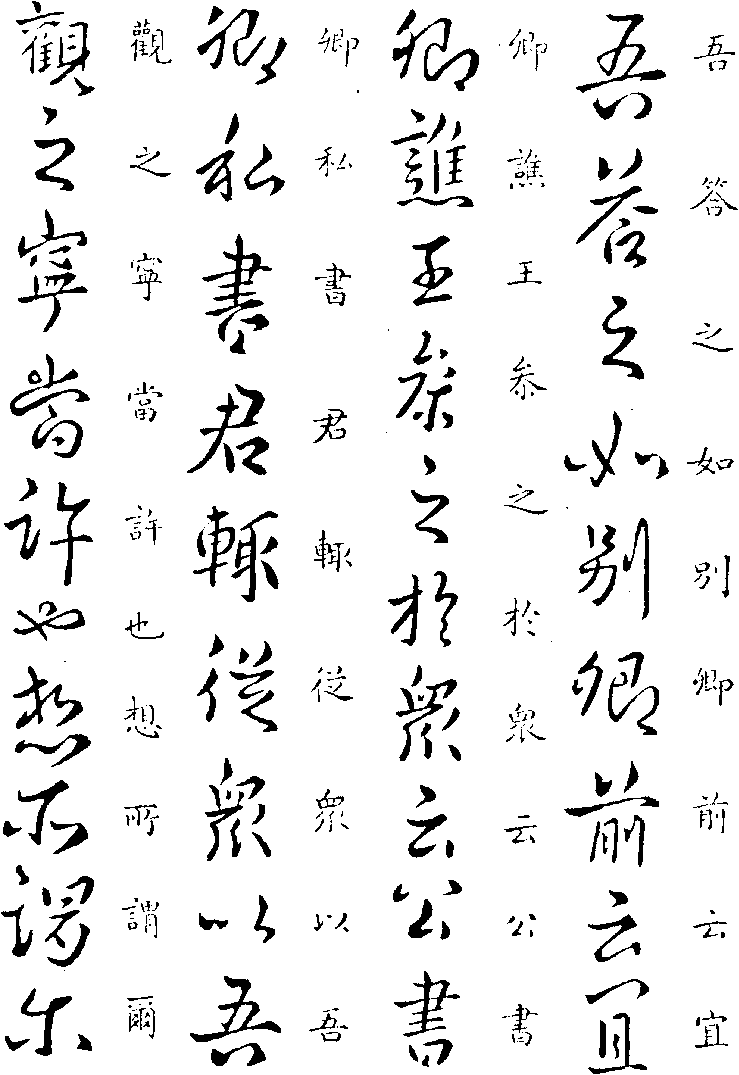 吾答之如別卿前云宜
吾答之如別卿前云宜
卿譙王參之於眾云公書
卿譙王叅之於眾云公書
卿私書君輙從眾以吾
卿私書君輙從眾以吾
觀之寧當許也想所謂爾
觀之寧當許也想所謂尔